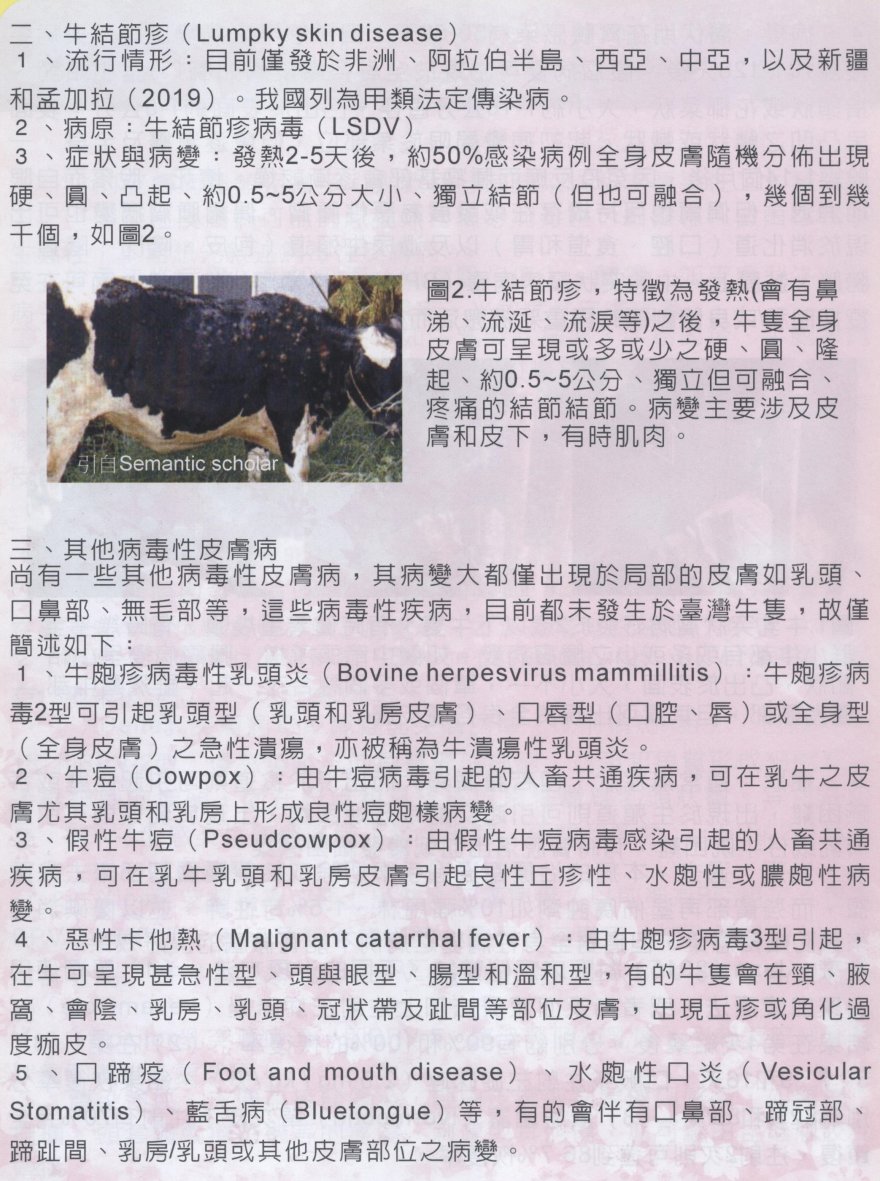 二、牛結節疹（Lumpky skin disease）
1、流行情形：目前僅發於非洲、阿拉伯半島、西亞、中亞，以及新疆
和孟加拉（2019）。我國列為甲類法定傳染病。
2、病原：牛結節疹病毒（LSDV）
3、症狀與病變：發熱2-5天後，約50%感染病例全身皮膚隨機分佈出現
硬、圓、凸起、約0.5~5公分大小、獨立結節（但也可融合），幾個到幾
千個，如圖2。
圖2.牛結節疹，特徵為發熱(會有鼻
涕、流涎、流淚等)之後，牛隻全身
皮膚可呈現或多或少之硬、圓、隆
起、約0.5~5公分、獨立但可融合、
疼痛的結節結節。病變主要涉及皮
膚和皮下，有時肌肉。
引自Semantic scholar
三、其他病毒性皮膚病
尚有一些其他病毒性皮膚病，其病變大都僅出現於局部的皮膚如乳頭、
口鼻部、無毛部等，這些病毒性疾病，目前都未發生於臺灣牛隻，故僅
簡述如下:
1、牛皰疹病毒性乳頭炎（Bovine herpesvirus mammillitis）：牛皰疹病
毒2型可引起乳頭型（乳頭和乳房皮膚）、口唇型（口腔、唇）或全身型
（全身皮膚）之急性潰瘍，亦被稱為牛潰瘍性乳頭炎。
2、牛痘（Cowpox）：由牛痘病毒引起的人畜共通疾病，可在乳牛之皮
膚尤其乳頭和乳房上形成良性痘皰樣病變。
3、假性牛痘（Pseudcowpox）：由假性牛痘病毒感染引起的人畜共通
疾病，可在乳牛乳頭和乳房皮膚引起良性丘疹性、水皰性或膿皰性病
變。
4、惡性卡他熱（Malignant catarrhal fever）：由牛皰疹病毒3型引起，
在牛可呈現甚急性型、頭與眼型、腸型和溫和型，有的牛隻會在頸、腋
窩、會陰、乳房、乳頭、冠狀帶及趾間等部位皮膚，出現丘疹或角化過
度痂皮。
5、口蹄疫（Foot and mouth disease）、水皰性口炎（Vesicular
Stomatitis）、藍舌病（Bluetongue）等，有的會伴有口鼻部、蹄冠部、
蹄趾間、乳房/乳頭或其他皮膚部位之病變。